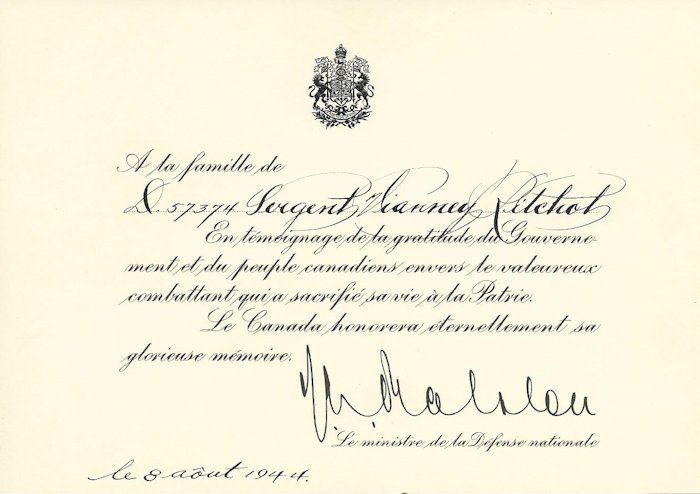 A la famille de
D. 57374 Sergent Vianney Ritchot
En témoignage de la gratitude du Gouverne-
ment et du peuple canadiens envers le valeureux
combattant qui a sacrifié sa vie à la Patrie.
Le Canada honorera éternellement sa
glorieuse mémoire.
Le ministre de la Défense nationale
le 8 août 1944.